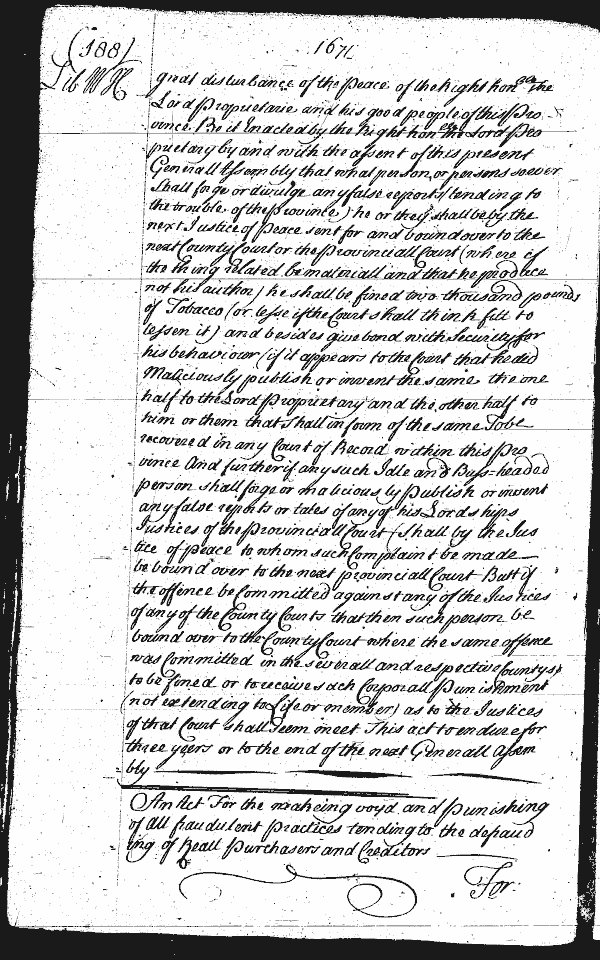 (188)
1671
Lib W H
great disturbance of the Peace of the Right hon:ble The
Lord Proprietarie and his good people of this Pro
vince. Be it Enacted by the Right hon:ble the Lord Pro
prietary by and with the assent of this present
Generall Assembly that what person, or persons soever
Shall forge or divulge any false reports (tending to
the trouble of the province) he or they shall be by the
next Justice of Peace sent for and bound over to the
next County Court or the Provinciall Court (where if
the thing related be materiall and that he produce
not his author) he shall be fined two thousand pounds
of Tobacco (or lesse if the Court shall think fitt to
lessen it) and besides give bond with Security for
his behaviour (if it appears to the Court that he did
Maliciously publish or invent the same the one
half to the Lord Proprietary and the other half to
him or them that shall inform of the same To be
recovered in any Court of Record within this Pro
vince And further if any such Idle and Busy-headed
person shall forge or maliciously publish or invent
any false reports or tales of any of his Lordships
Justices of the Provinciall Court (Shall by the Jus
tice of peace to whom such Complaint be made
be bound over to the next provinciall Court Butt if
the offence be Committed against any of the Justices
of any of the County Courts that then such person be
bound over to the County Court where the same offence
was Committed in the severall and respective Countys
to be fined or to receive such Corporall Punishment
(not extending to Life or member) as to the Justices
of that Court shall seem meet This act to endure for
three yeers or to the end of the next Generall Assem
bly
An Act For the makeing voyd and Punishing
of all fraudulent Practices tending to the defraud
ing of Reall Purchasers and Creditors
For: